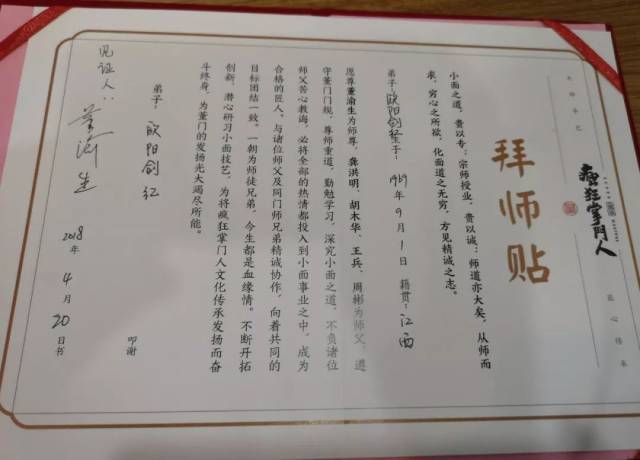 大师手艺
疯狂掌門人
匠心传承
拜师贴
小面之道，贵以专；宗师授业，贵以诚；师道亦大矣，从师而
矣，穷心之所欲，化面道之无穷，方见精诚之志。
弟子：欧阳剑红于：1969年9月1日籍贯：江西
愿尊董渝生为师尊，龚洪明、胡木华、王兵、周彬为师父，遵
守董门门规，尊师重道，勤勉学习，深究小面之道，不负诸位
师父苦心教诲，必将全部的热情都投入到小面事业之中，成为
合格的匠人。与诸位师父及同门师兄弟精诚协作，向着共同的
目标团结一致。一朝为师徒兄弟，今生都是血缘情。不断开拓
创新，潜心研习小面技艺，为将疯狂掌门人文化传承发扬而奋
斗终身，为董门的发扬光大竭尽所能。
叩谢
弟子：欧阳剑红
见证人：董渝生
2018年4月20日书